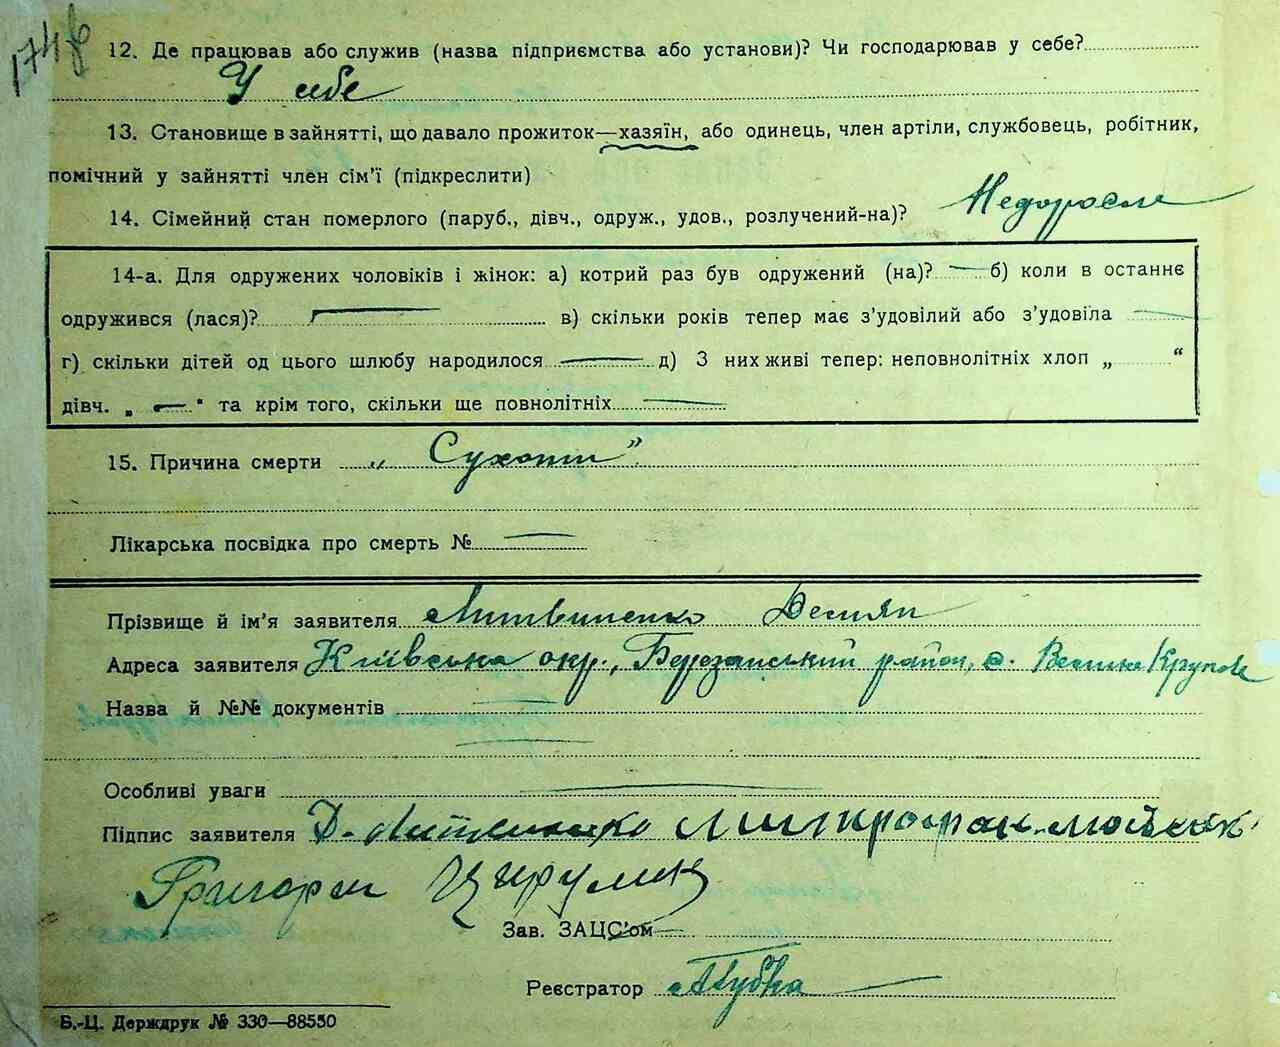 174
12. Де працював або служив (назва підприємства або установи)? Чи господарював у себе?
У себе
13. Становище в зайнятті, що давало прожиток—хазяїн, або одинець, член артіли, службовець, робітник,
помічний у зайнятті член сім'ї (підкреслити)
14. Сімейний стан померлого (паруб., дівч., одруж., удов., розлучений-на)? Недоросле
14-а. Для одружених чоловіків і жінок: а) котрий раз був одружений (на)? — б) коли в останнє
одружився (лася)? — в) скільки років тепер має з'удовілий або з'удовіла —
г) скільки дітей од цього шлюбу народилося — д) З них живі тепер: неповнолітніх хлоп „ “
дівч. „ — “ та крім того, скільки ще повнолітніх —
15. Причина смерти „Сухоти”
Лікарська посвідка про смерть № —
Прізвище й ім'я заявителя Литвиненко Демян
Адреса заявителя Київська окр., Березанський район, с. Велика Крупол
Назва й №№ документів —
Особливі уваги —
Підпис заявителя Д. Литвиненко Митрофан
Григорій Цирулик
Зав. ЗАЦС'ом
Реєстратор
Б.-Ц. Держдрук № 330—88550